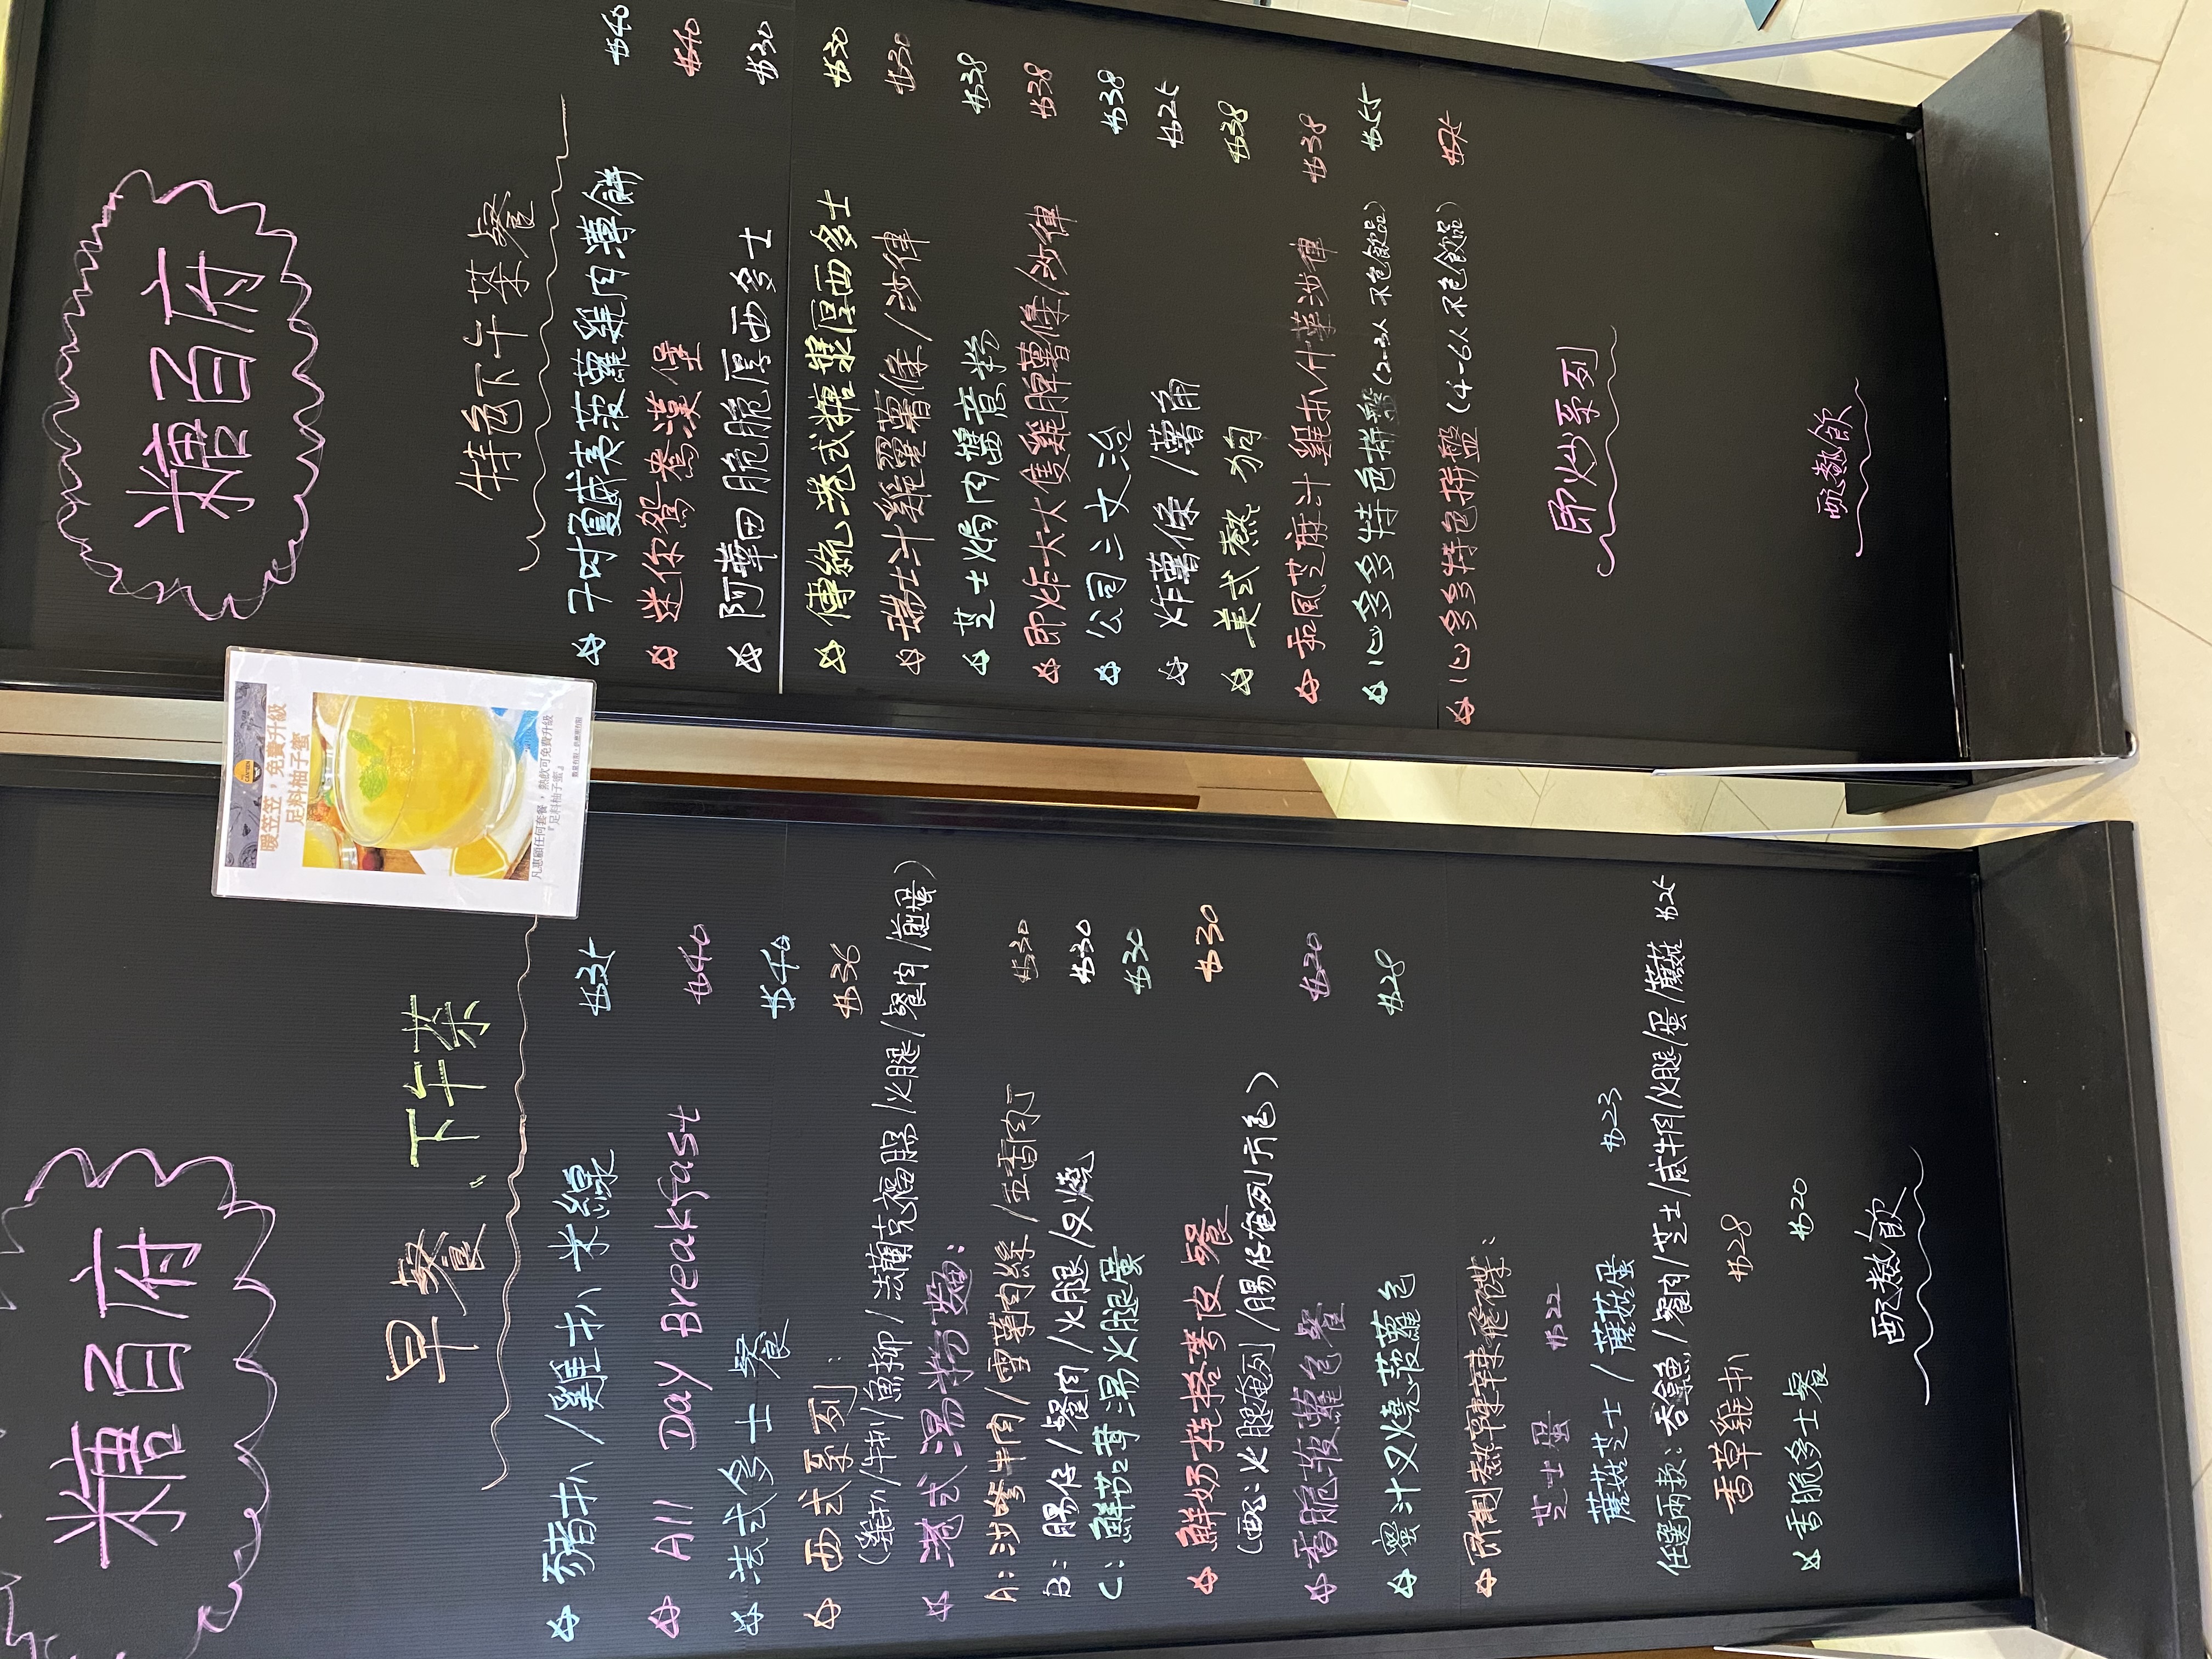 糖百府
早餐、下午茶
☆ 豬扒/雞扒米線 $35
☆ All Day Breakfast $40
☆ 法式多士餐 $40
☆ 西式系列: $36
(雞扒/牛扒/魚柳/法蘭克福腸/火腿/餐肉/煎蛋)
☆ 港式湯粉麵:
A: 沙嗲牛肉/雪菜肉絲/五香肉丁 $30
B: 腸仔/餐肉/火腿/叉燒 $30
C: 鮮茄茸湯火腿蛋 $30
☆ 鮮奶羊撻皮餐 $30
(配: 火腿奄列/腸仔奄列方包)
☆ 香脆菠蘿包餐 $20
☆ 蜜汁叉燒菠蘿包 $28
☆ 即制熱辣辣飛碟:
芝士蛋 $22
蘑菇芝士/蘑菇蛋 $23
任選兩款: 吞拿魚/餐肉/芝士/咸牛肉/火腿/蛋/蘑菇 $25
香草雞扒 $28
☆ 香脆多士餐 $20
配熱飲
暖笠笠,免費升級
足料柚子蜜
凡惠顧任何套餐,熱飲可免費升級
『足料柚子蜜』
糖百府
特色下午茶餐
☆ 7吋夏威夷菠蘿雞肉薄餅 $40
☆ 迷你鴛鴦漢堡 $40
☆ 阿華田脆脆厚西多士 $30
☆ 傳統港式糖漿厚西多士 $30
☆ 瑞士汁雞翼薯條/沙律 $30
☆ 芝士焗肉醬意粉 $38
☆ 即炸大大隻雞脾薯條/沙律 $38
☆ 公司三文治 $38
☆ 炸薯條/薯角 $25
☆ 美式熱狗 $38
☆ 和風芝麻汁雞扒什菜沙律 $38
☆ 心多多特色拼盤(2-3人不包飲品) $55
☆ 心多多特色拼盤(4-6人不包飲品) $75
即炒系列
配熱飲